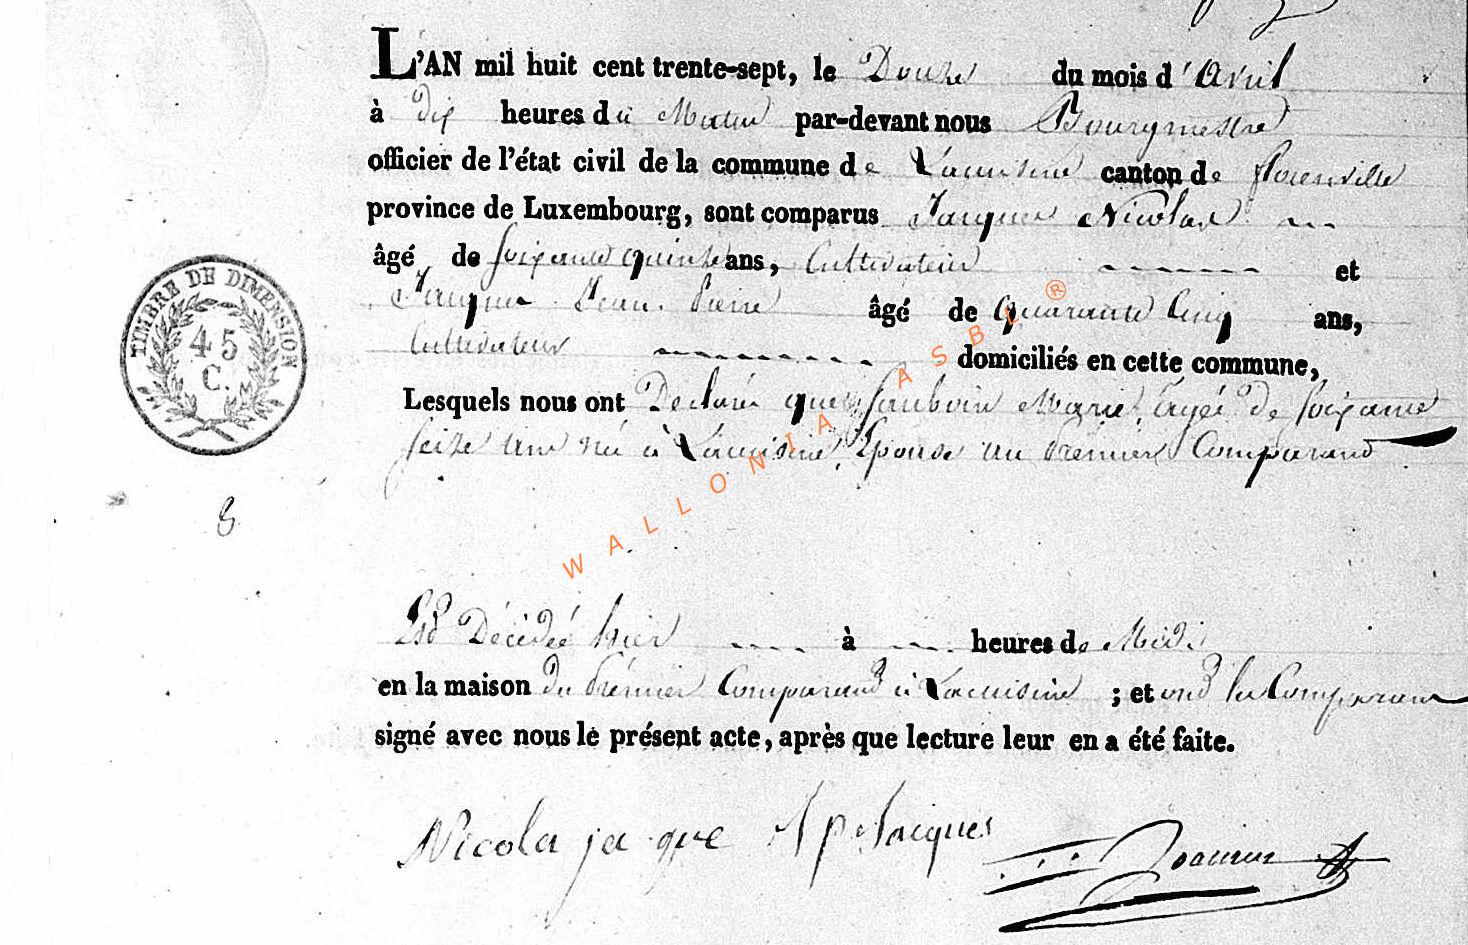 L'AN mil huit cent trente-sept, le Douze du mois d'Avril
à dix heures du Matin par-devant nous Bourgmestre
officier de l'état civil de la commune de Lacuisine canton de florenville
province de Luxembourg, sont comparus Jacques Nicolas
âgé de soixante quinze ans, Cultivateur et
Jacques Jean Pierre âgé de quarante Cinq ans,
Cultivateur domiciliés en cette commune,
Lesquels nous ont Déclaré que Marie, agée de soixante
seize ans née à Lacuisine, Epouse au Prémier Comparand
Est Décédée hier à heures de Midi
en la maison du Prémier Comparand à Lacuisine ; et ont les Comparans
signé avec nous le présent acte, après que lecture leur en a été faite.
Nicola jaque J p Jacques
TIMBRE DE DIMENSION
45
C.
WALLONIA ASBL ®